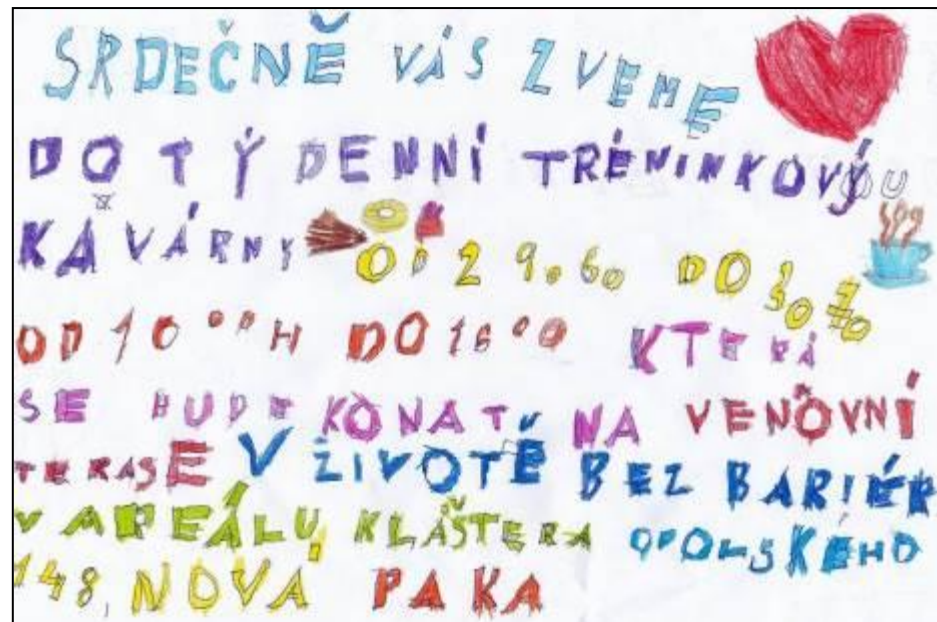 SRDEČNĚ VÁS ZVEME
DO TÝDENNÍ TRÉNINKOVÝOU
KAVÁRNY OD 29.60 DO 30 70
OD 10 00 H DO 16 00 KTERÁ
SE BUDE KONAT NA VENOVNÍ
TERASE V ŽIVOTĚ BEZ BARIÉR
V AREÁLU KLÁŠTERA OPOLSKÉHO
148, NOVÁ PAKA